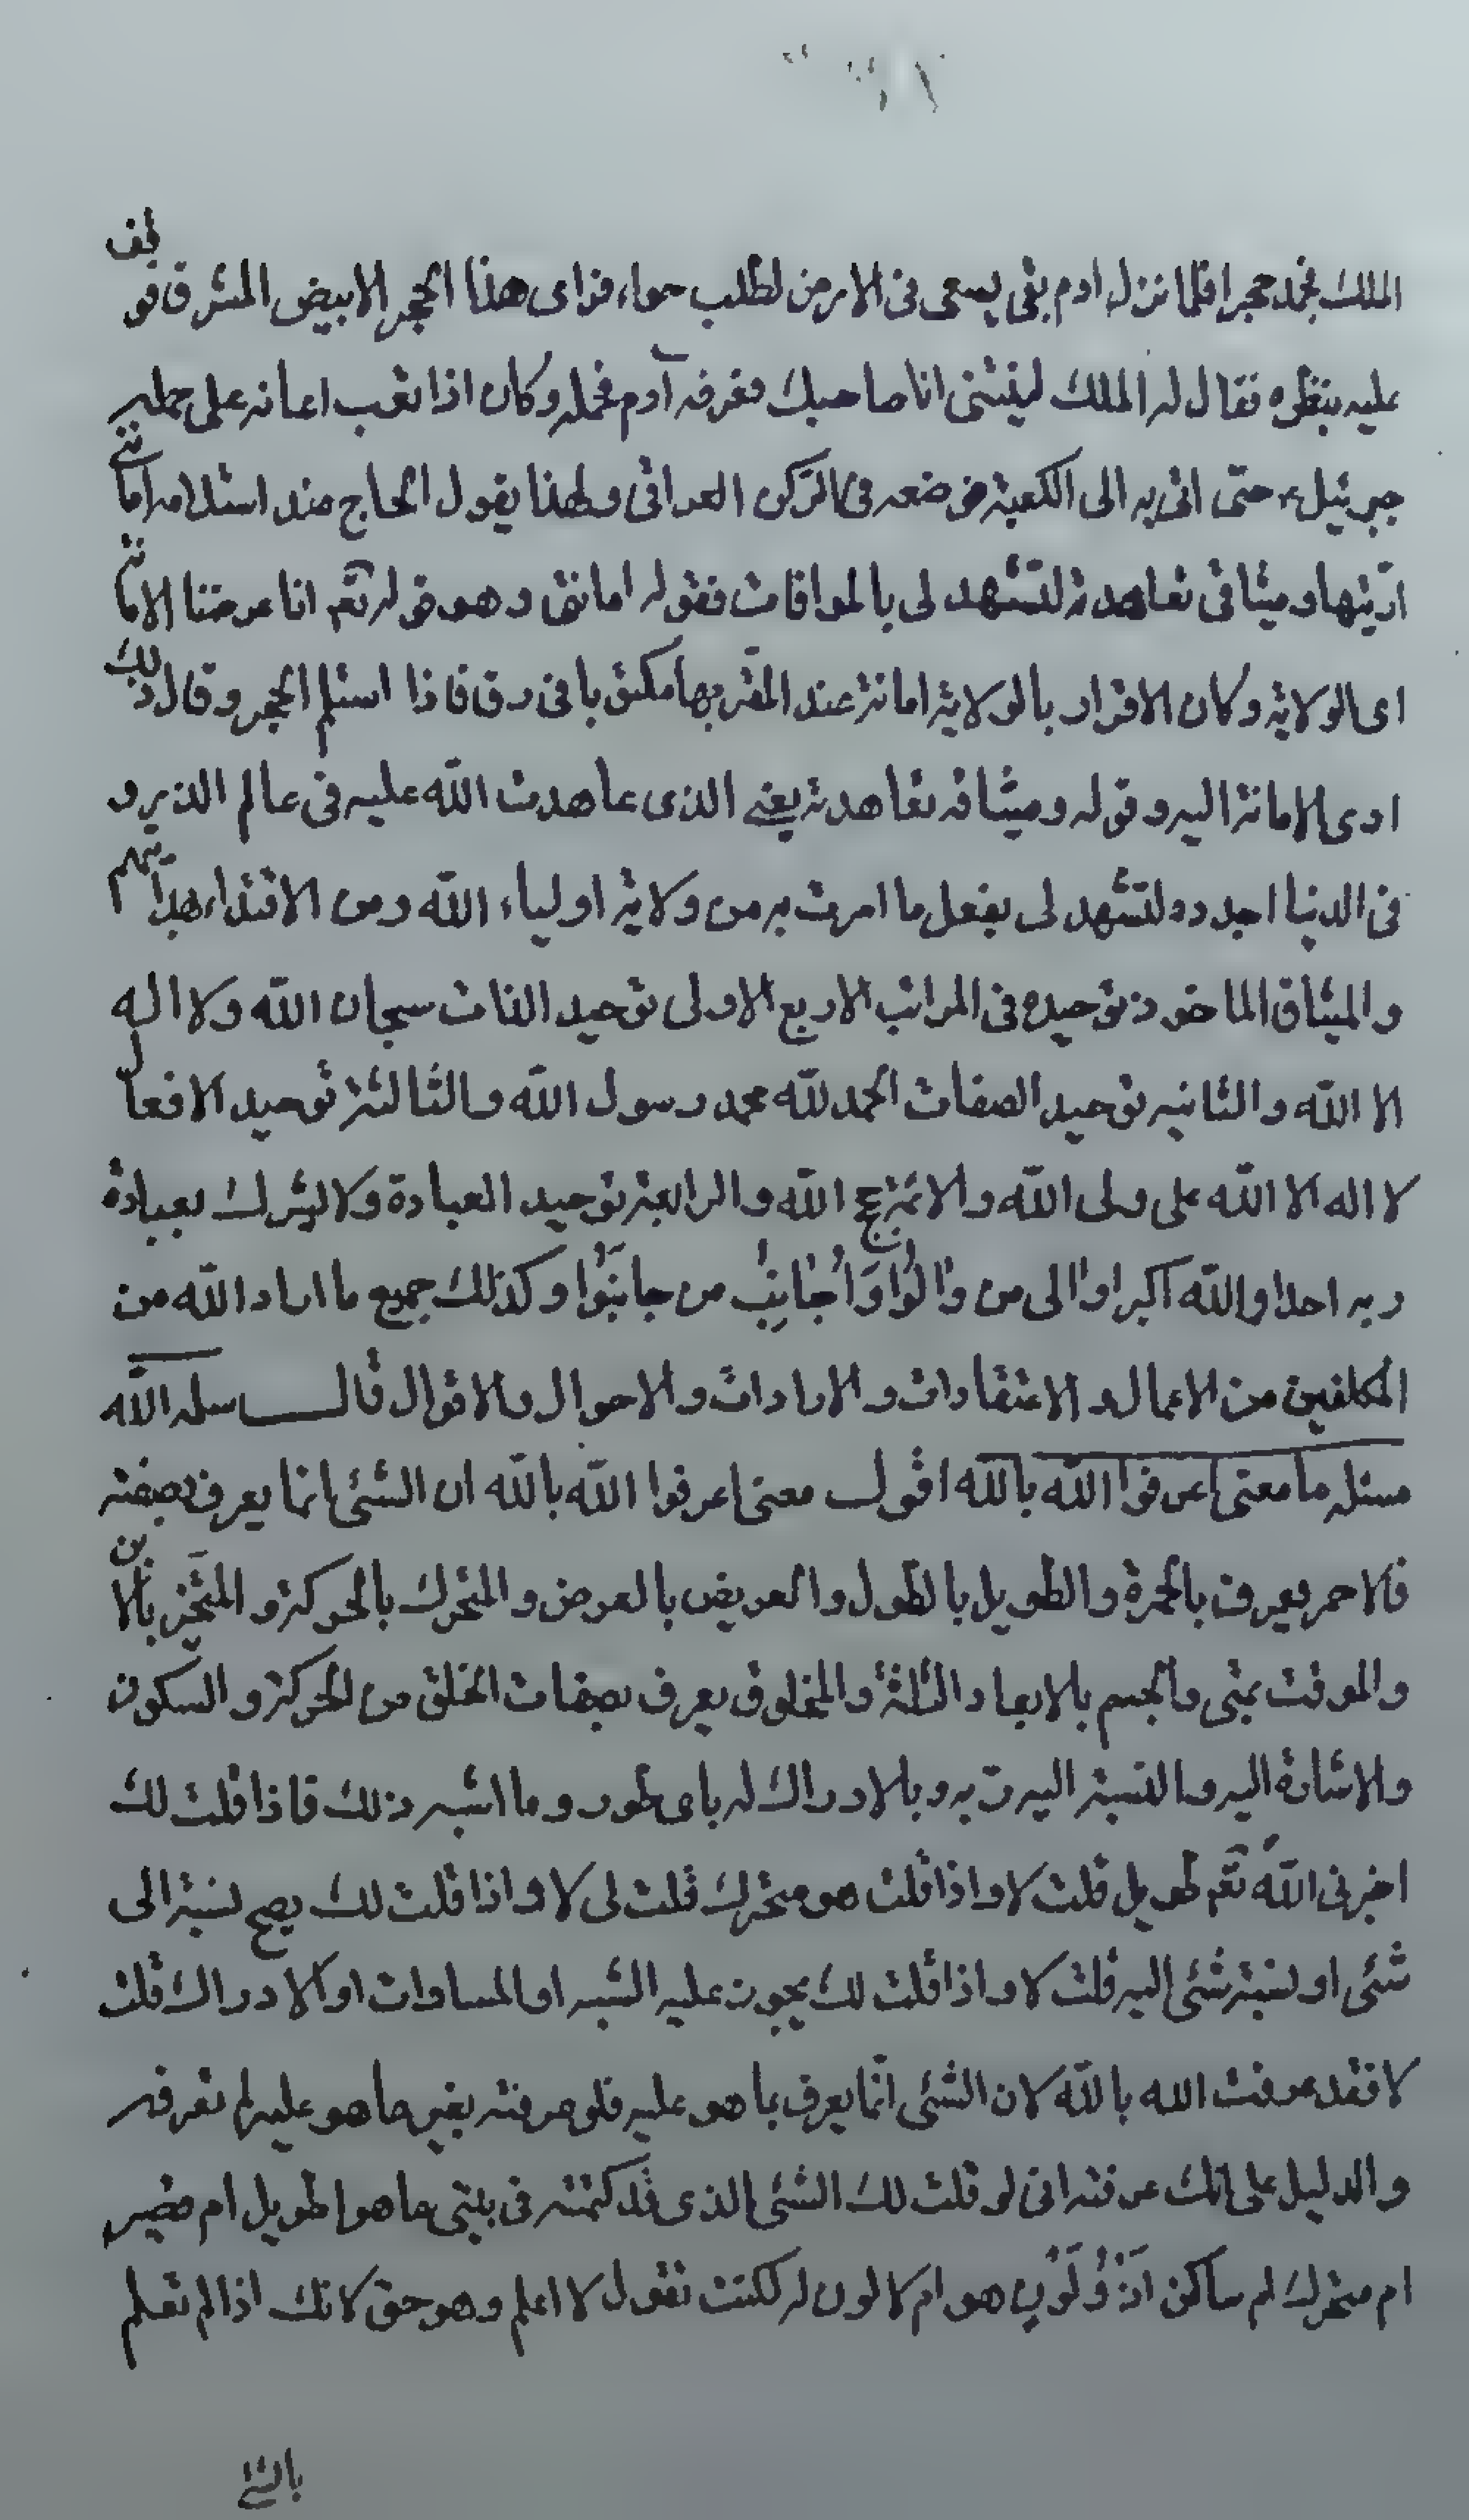 الملك فجمد حجرا فلما نزل ادم بقي يسعى في الارض لطلب حواء فراى هذا الحجر الابيض المشرق فوقف
عليه ينظره فقال له الملك نسيتني انا صاحبك فعرفه آدم فحمله وكان اذا تعب اعانه على حمله
جبرئيل ع حتى اتى به الى الكعبة فوضعه في الركن العراقي ولهذا يقول الحاج عند استلامه امانتي
ادّيتها وميثاقي تعاهدته لتشهد لي بالموافات فقوله امانتي وهو قوله تعم انا عرضنا الامانة
اى الولاية وكان الاقرار بالولاية امانة عند المقر بها مكتوبا في رق فاذا استلم الحجر وقال ذلك
ادى الامانة اليه وقوله وميثاقه تعاهدته يعني الذى عاهدت الله عليه في عالم الذر و
في الدنيا اجدده لتشهد لى بفعل ما امرت به من ولاية اولياء الله ومن الاقتداء بهداهم
والميثاق الماخوذ توحيده في المراتب الاربع الاولى توحيد الذات سبحان الله ولا اله
الا الله والثانيه توحيد الصفات الحمد لله محمد رسول الله والثالثة توحيد الافعال
لا اله الا الله على ولى الله والائمة حجج الله والرابعة توحيد العبادة ولا يشرك بعبادة
ربه احدا والله اكبر اوالى من والوا واجانب من جانبوا وكذلك جميع ما اراد الله من
المكلفين من الاعمال والاعتقادات والارادات والاحوال والاقوال قال سلمه الله
مسئله ما معنى اعرفوا الله بالله اقول معنى اعرفوا الله بالله ان الشئ انما يعرف بصفته
فالاحمر يعرف بالحمرة والطويل بالطول والعريض بالعرض والمتحرك بالحركة والمتحيّز بالاين
والموقت بمتى والجسم بالابعاد الثلثة والمخلوق يعرف بصفات الخلق من الحركة والسكون
والاشارة اليه والنسبة اليه وبه وبالادراك له باى طور وما اشبه ذلك فاذا قلت لك
اخبرنى الله تعم طويل قلت لا واذا قلت هو متحرك قلت لى لا واذا قلت لك يصح نسبة الى
شئى او نسبة شئى اليه قلت لا واذا قلت لك يجوز عليه الشبه او المساوات او الادراك قلت
لا فقد عرفت الله بالله لان الشئى انما يعرف بما هو عليه فلو عرفته بغير ما هو عليه لم تعرفه
والدليل على انك عرفته انى لو قلت لك الشئى الذى قد كتمته في بيتى ما هو اطويل ام قصير
ام متحرك ام ساكن اذو لون هو ام لا لون له لكنت تقول لا اعلم وهو حق لانك اذا لم تعلم
بالشئ